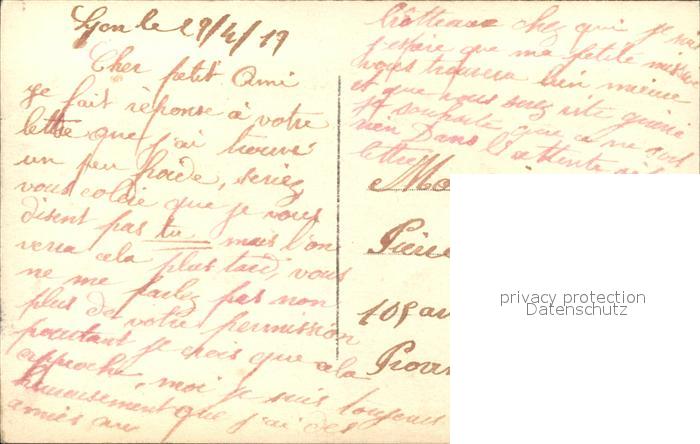 Lyon le 29/4/19
Cher petit Ami
je fait réponse à votre
lettre que j'ai trouvé
un peu froide, seriez
vous colère que je vous
disent pas tu mais l'on
verra cela plus tard, vous
ne me parlez pas non
plus de votre permission
pourtant je crois que cela
approche, moi je suis toujours
heureusement que j'ai des
amies au
Brotteaux chez qui je
j'espère que ma petite
vous trouvera bien mieux
et que vous serez vite
je souhaite que ce ne soit
rien Dans l'attente
lettre
Pierre
105
privacy protection
Datenschutz